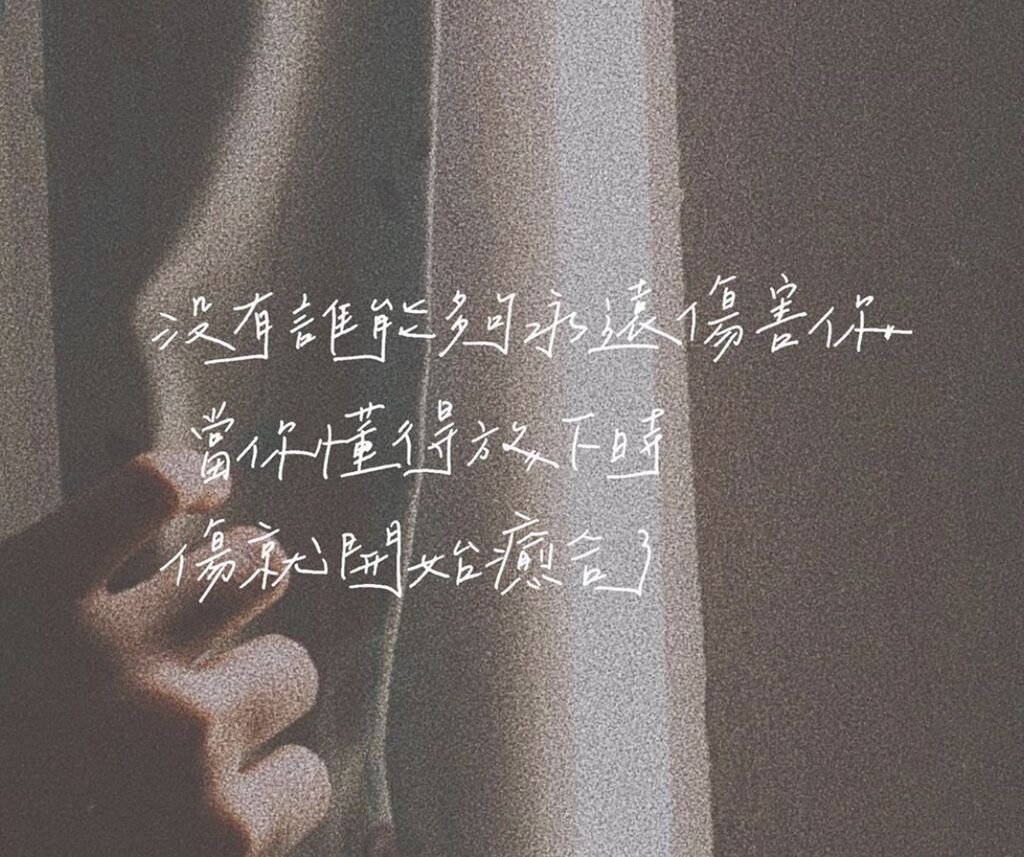 沒有誰能夠永遠傷害你
當你懂得放下時
傷就開始癒合了